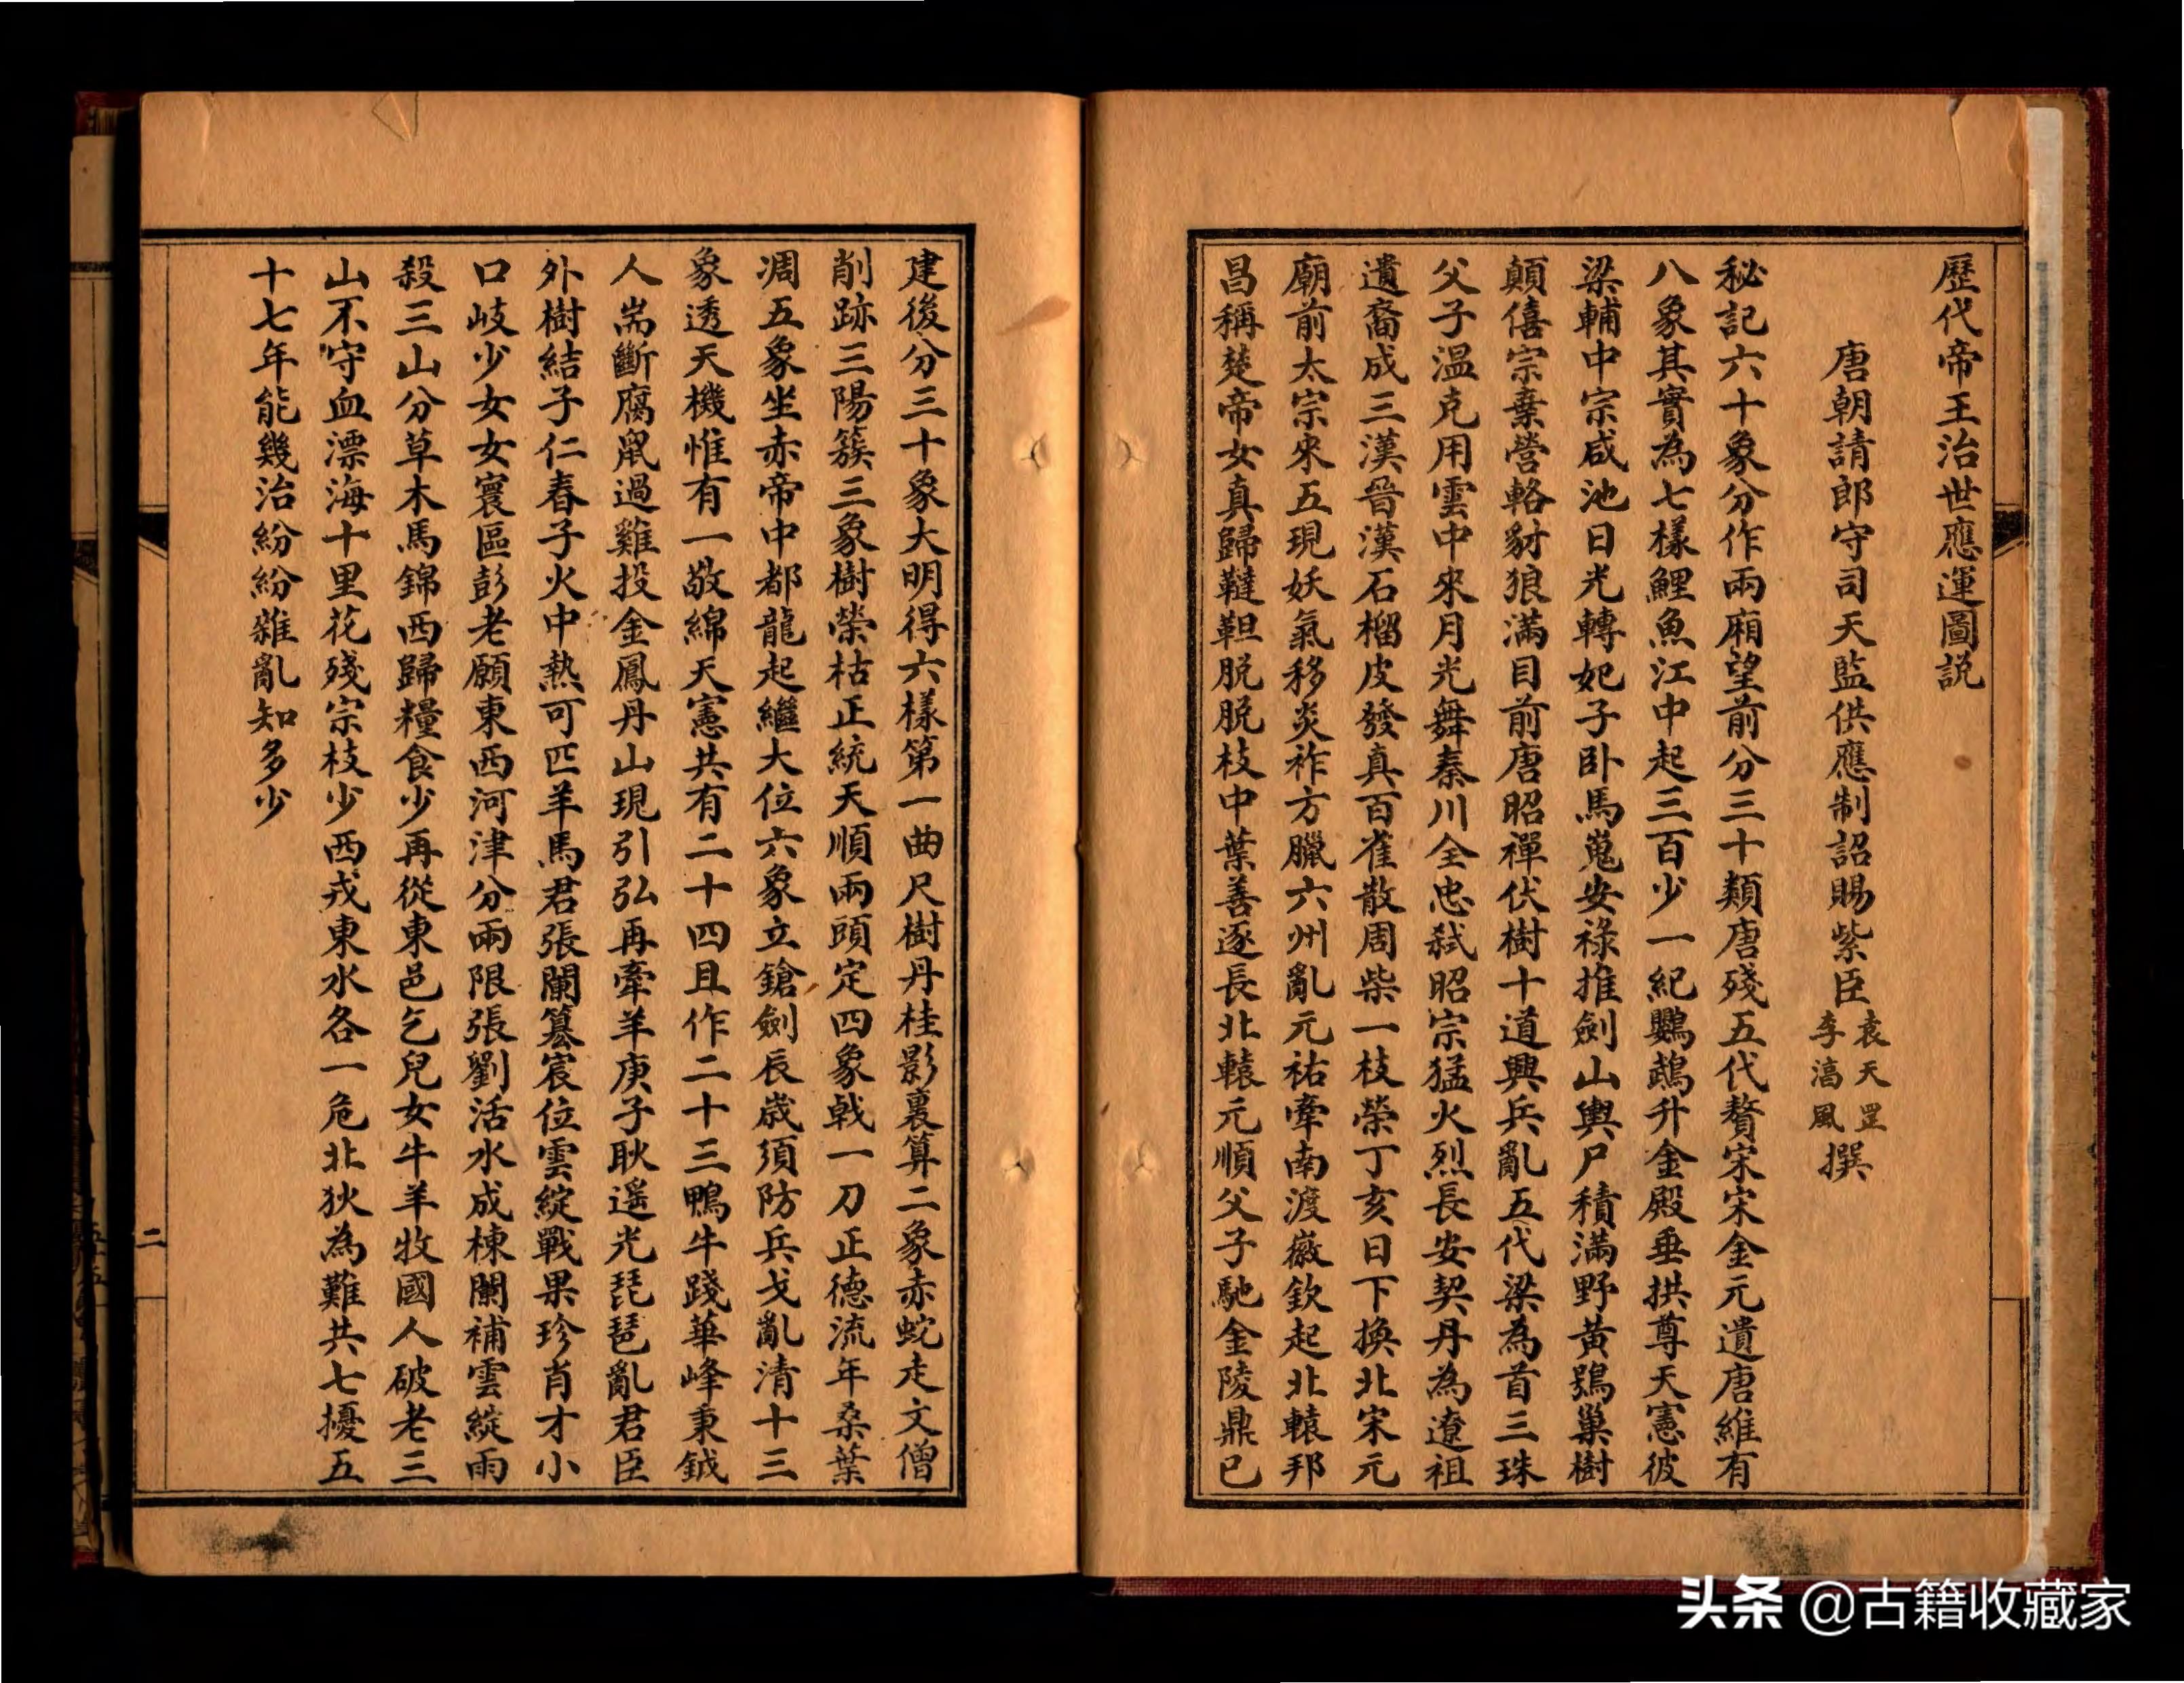 歷代帝王治世應運圖説
唐朝請郎守司天監供應制詔賜紫臣袁天罡李淓風撰
秘記六十象分作兩廂望前分三十類唐殘五代贅宋宋金元遺唐維有
八象其實為七樣鯉魚江中起三百少一紀鸚鵡升金殿垂拱尊天憲彼
梁輔中宗咸池日光轉妃子卧馬嵬安祿推劍山輿尸積滿野黃鴉巢樹
顛僖宗棄營輅豺狼滿目前唐昭禪伏樹十道興兵亂五代梁為首三珠
父子溫克用雲中來月光舞秦川全忠弒昭宗猛火烈長安契丹為遼祖
遺裔成三漢晉漢石榴皮發真百雀散周柴一枝榮丁亥日下換北宋元
廟前太宗來五現妖氣移炎祚方臘六州亂元祐牽南渡徽欽起北轅邦
昌稱楚帝女真歸韃靼脱脱枝中葉善逐長北轅元順父子馳金陵鼎已
建後分三十象大明得六樣第一曲尺樹丹桂影裏算二象赤蛇走文僧
削跡三陽簇三象樹榮枯正統天順兩頭定四象戟一刀正德流年桑葉
凋五象坐赤帝中都龍起繼大位六象立鎗劍辰歲須防兵戈亂清十三
象透天機惟有一敬綿天憲共有二十四且作二十三鴨牛踐華峰秉鉞
人耑斷腐鼠過雞投金鳳丹山現引弘再牽羊庚子耿遥光琵琶亂君臣
外樹結子仁春子火中熱可匹羊馬君張闌篡宸位雲綻戰果珍肖才小
口岐少女女寰區彭老願東西河津分兩限張劉活水成棟闌補雲綻雨
殺三山分草木馬錦西歸糧食少再從東邑乞兒女牛羊牧國人破老三
山不守血漂海十里花殘宗枝少西戎東水各一危北狄為難共七擾五
十七年能幾治紛紛雜亂知多少
二
头条 @古籍收藏家